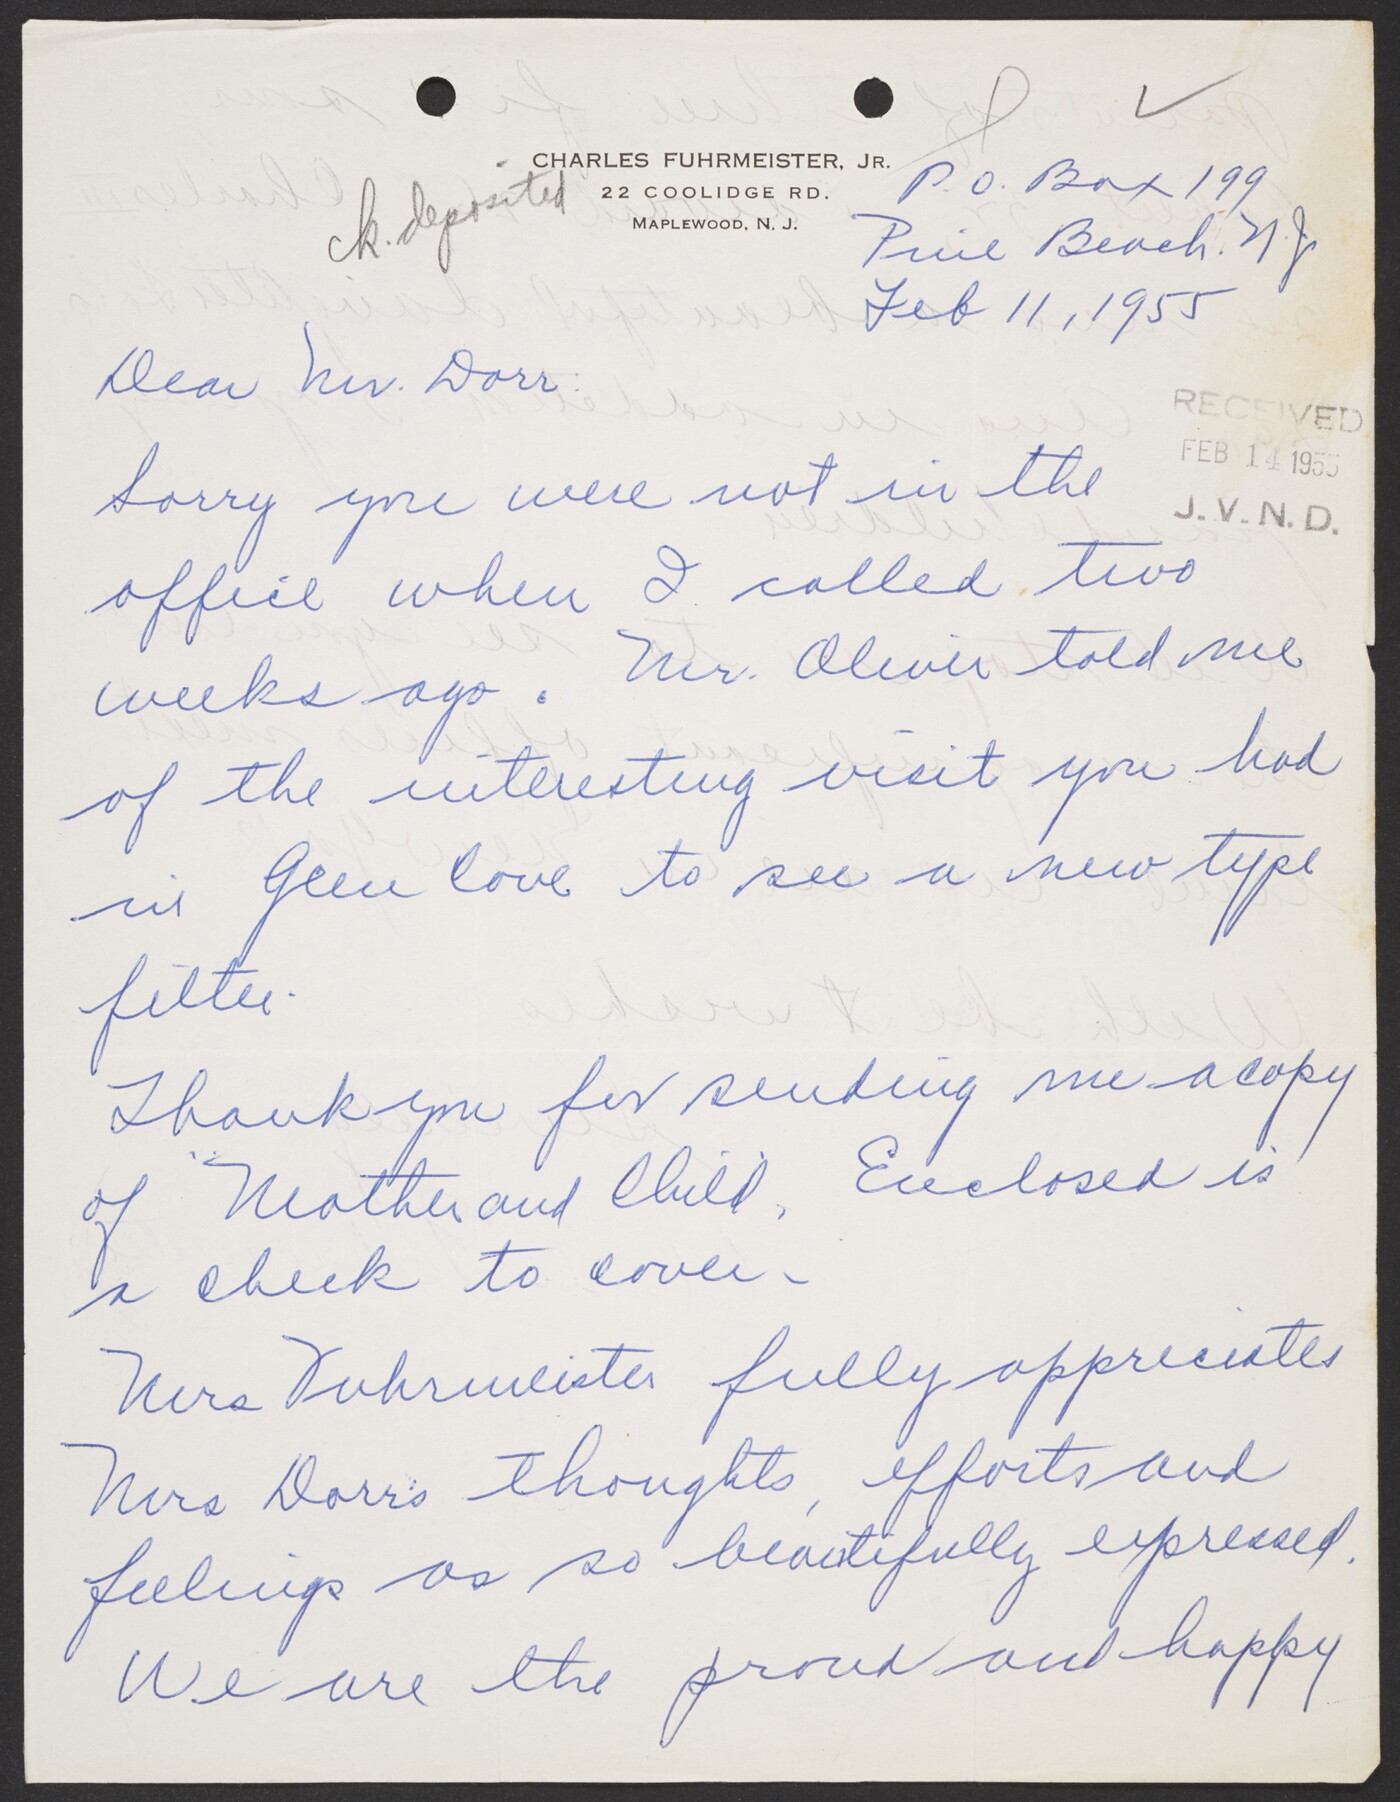 CHARLES FUHRMEISTER, JR.
22 COOLIDGE RD.
MAPLEWOOD, N. J.
ck. deposited
P.O. Box 199
Pine Beach. N J
Feb 11, 1955
RECEIVED
FEB 14 1955
J. V. N. D.
Dear Mr. Dorr:
Sorry you were not in the
office when I called two
weeks ago. Mr. Oliver told me
of the interesting visit you had
in Glen Cove to see a new type
filter.
Thank you for sending me a copy
of "Mother and Child". Enclosed is
a check to cover.
Mrs Fuhrmeister fully appreciates
Mrs Dorr's thoughts, efforts and
feelings as so beautifully expressed.
We are the proud and happy